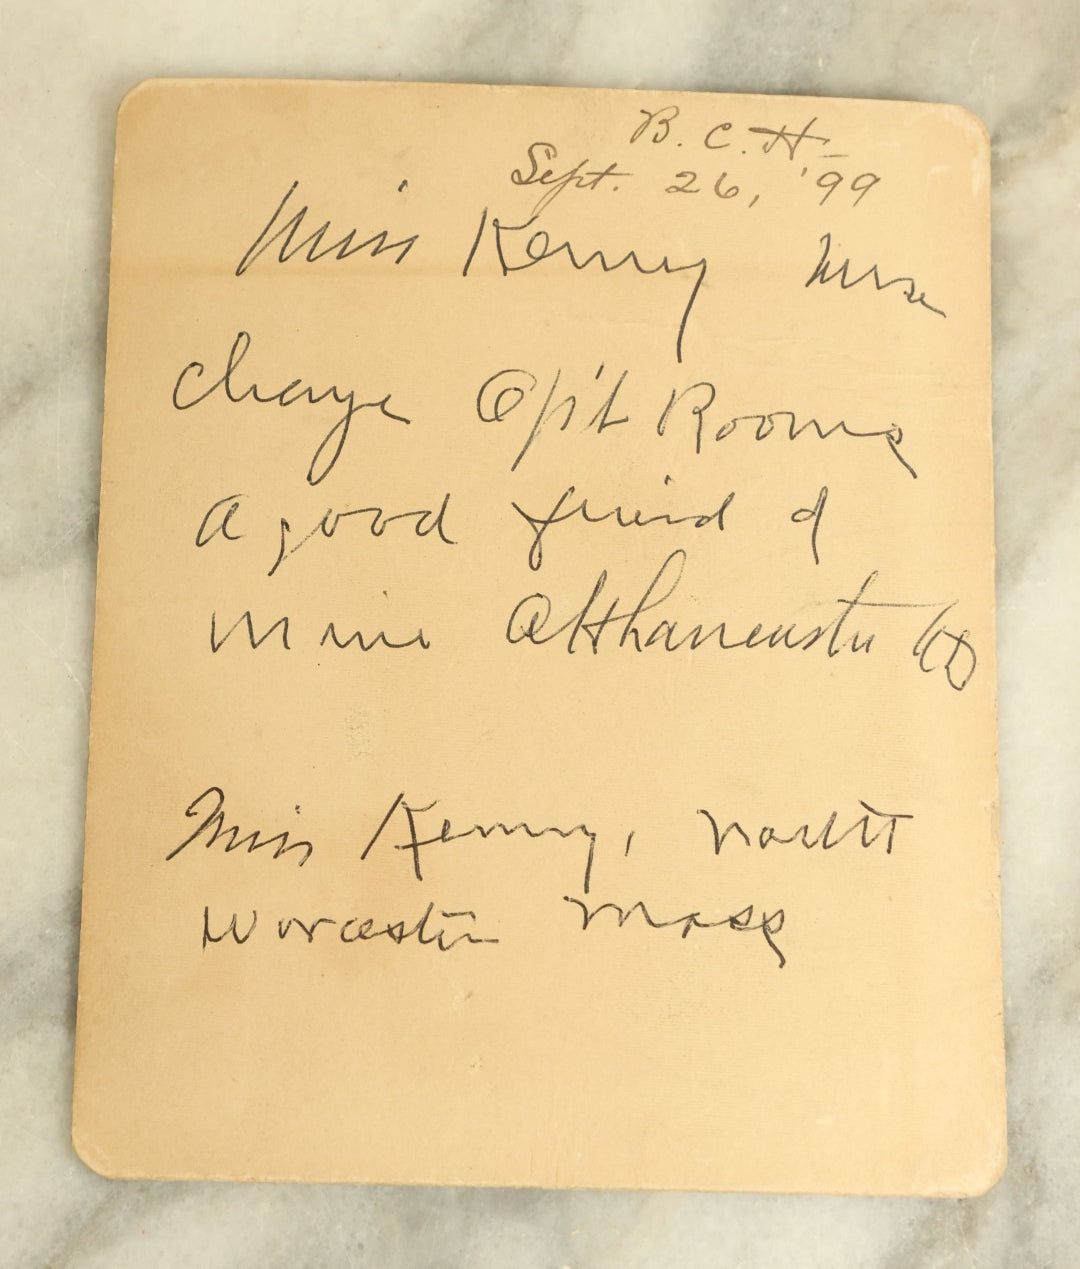 B. C. H.
Sept. 26, '99
Miss Kenny Nurse
charge Op't Rooms
A good friend of
mine
Miss Kenny, North
Worcester Mass